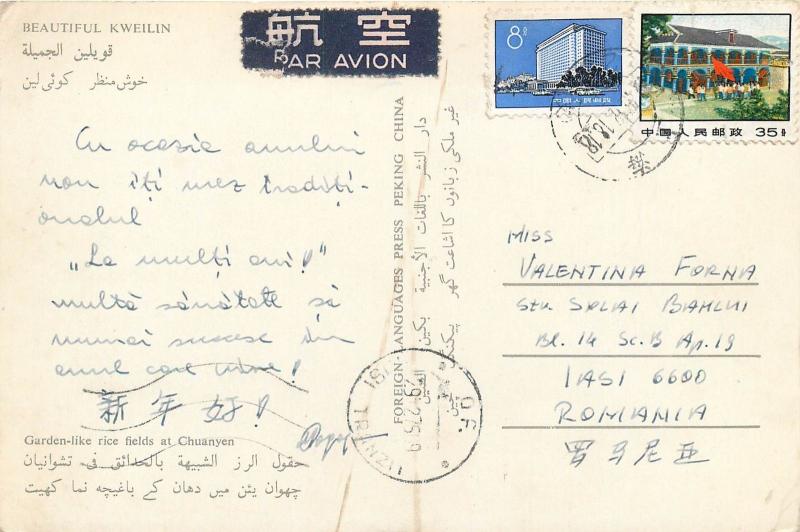 BEAUTIFUL KWEILIN
قويلين الجميلة
خوش منظر كوئى لين
航空
PAR AVION
8分
中国人民邮政
中国人民邮政 35分
Cu ocazia anului
nou îți urez tradiți-
onalul
„La mulți ani!"
multă sănătate și
numai succese în
anul care vine!
新年好!
Garden-like rice fields at Chuanyen
حقول الرز الشبيهة بالحدائق فى تشوانيان
چھوان يئن ميں دھان كے باغيچہ نما كھيت
FOREIGN LANGUAGES PRESS PEKING CHINA
دار النشر باللغات الأجنبية بكين الصين
غير ملكى زبانوں كا اشاعت گھر پيكنگ چين
IAȘI
TRANZIT
O.F.
MISS
VALENTINA FORNA
Str. SPLAI BAHLUI
Bl. 14 Sc. B Ap. 19
IASI 6600
ROMANIA
罗马尼亚